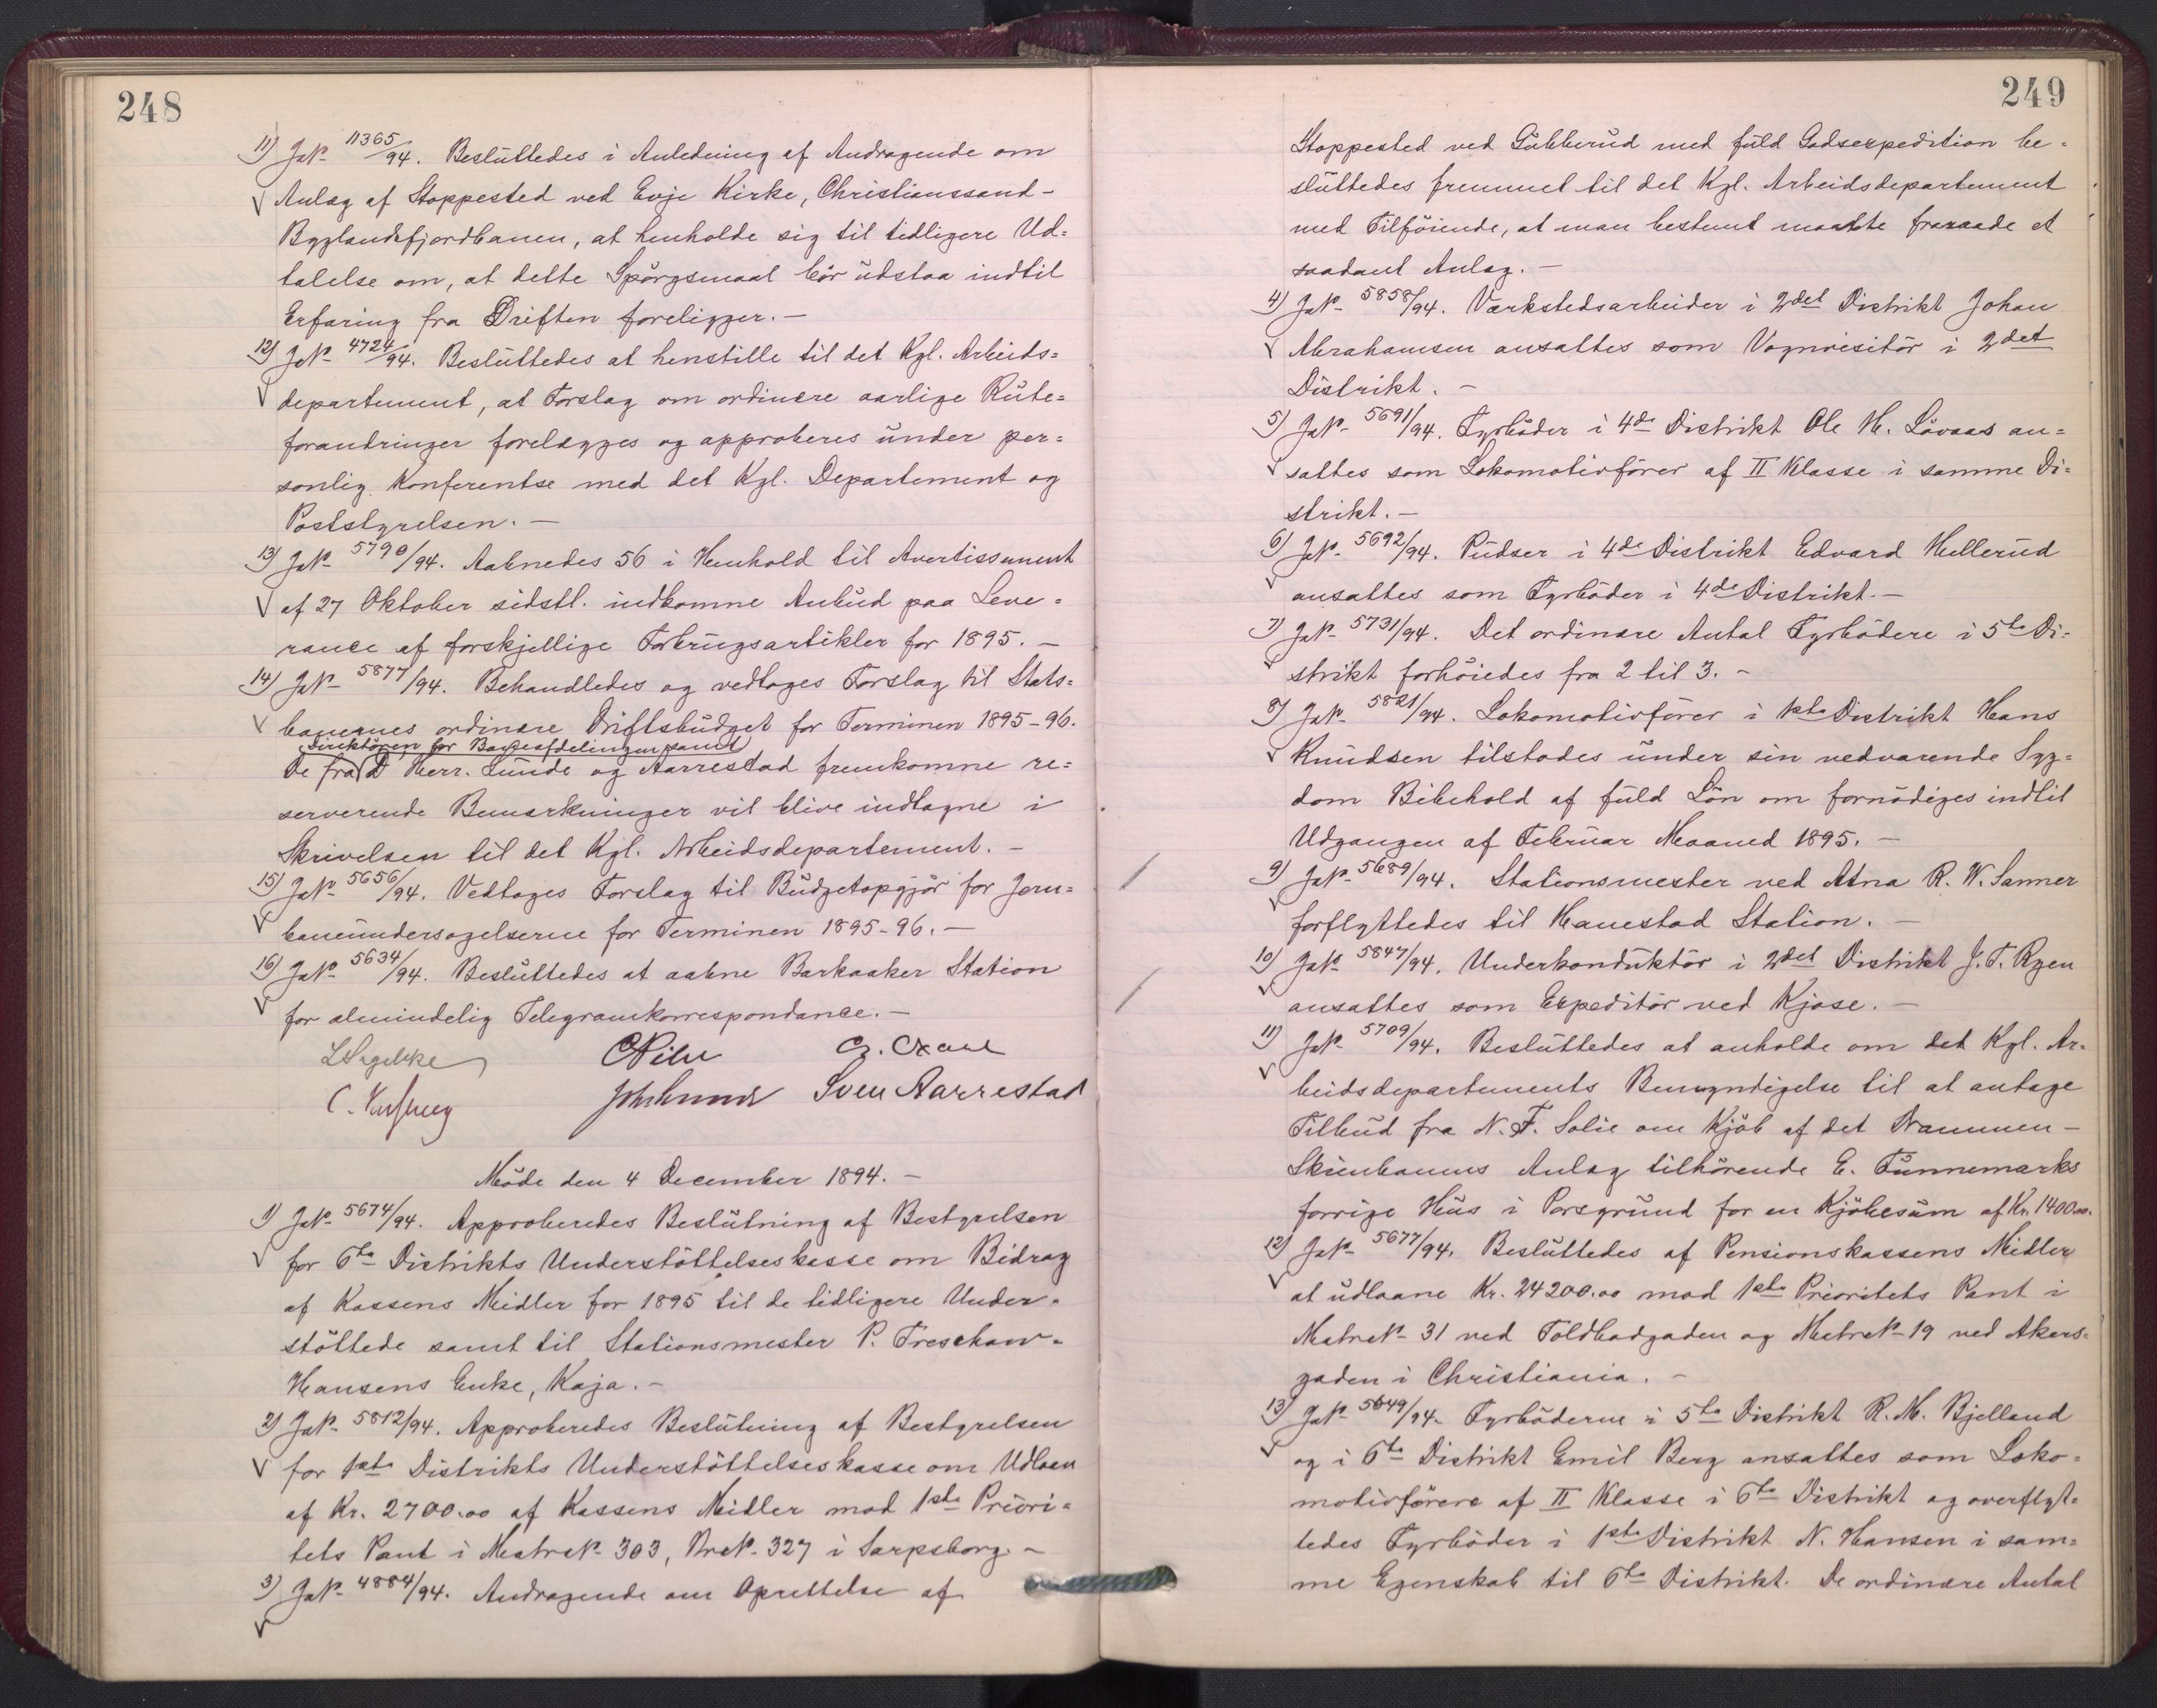 248
11) JN⁰ 11365/94. Beslüttedes i Anledning af Andragende om
Anlæg af Stoppested ved Evje Kirke, Christianssand-
Byglandsfjordbanen, at henholde sig til tidligere Ud=
talelse om, at dette Spörgsmaal bör üdstaa indtil
Erfaring fra Driften foreligger. —
12) JN⁰ 4724/94. Beslüttedes at henstille til det Kgl. Arbeids=
departement, at Forslag om ordinære aarlige Rüte=
forandringer forelægges og approberes ünder per=
sonlig Konferentse med det Kgl. Departement og
Poststyrelsen. —
13) JN⁰ 5790/94. Aabnedes 56 i Henhold til Avertissement
af 27 Oktober sidstl. indkomne Anbüd paa Leve=
rance af forskjellige Forbrugsartikler for 1895. —
14) JN⁰ 5877/94. Behandledes og vedtoges Forslag til Stats=
banernes ordinære Driftsbüdget for Terminen 1895-96.
Direktören for Baneafdelingen samt
De fra D'Herr. Lünde og Aarrestad fremkomne re=
serverende Bemærkninger vil blive indtagne i
Skrivelsen til det Kgl. Arbeidsdepartement. —
15) JN⁰ 5656/94. Vedtoges Forslag til Büdgetopgjör for Jern=
baneündersøgelserne for Terminen 1895-96. —
16) JN⁰ 5634/94. Beslüttedes at aabne Barkaaker Station
for almindelig Telegramkorrespondance. —
LSegelcke CPihl
Sven Aarrestad
Möde den 4 December 1894. —
1) JN⁰ 5674/94. Approberedes Beslütning af Bestyrelsen
for 6te Distrikts Understöttelseskasse om Bidrag
af Kassens Midler for 1895 til de tidligere Under=
stöttede samt til Stationsmester P. Treschow-
Hansens Enke, Kaja. —
2) JN⁰ 5812/94. Approberedes Beslütning af Bestyrelsen
for 1ste Distrikts Understöttelseskasse om Udlaan
af Kr. 2700.00 af Kassens Midler mod 1ste Priori=
tets Pant i MatrN⁰ 303, BrN⁰ 327 i Sarpsborg. —
3) JN⁰ 4884/94. Andragende om Oprettelse af
249
Stoppested ved Gübberüd med füld Godsexpedition be=
slüttedes fremmet til det Kgl. Arbeidsdepartement
med Tilföiende, at man bestemt maatte fraraade et
saadant Anlæg. —
4) JN⁰ 5858/94. Værkstedsarbeider i 2det Distrikt Johan
Abrahamsen ansattes som Vognvisitör i 2det
Distrikt. —
5) JN⁰ 5691/94. Fyrböder i 4de Distrikt Ole H. Lövaas an=
sattes som Lokomotivförer af II Klasse i samme Di=
strikt. —
6) JN⁰ 5692/94. Püdser i 4de Distrikt Edvard Hellerüd
ansattes som Fyrböder i 4de Distrikt. —
7) JN⁰ 5731/94. Det ordinære Antal Fyrbödere i 5te Di=
strikt forhöiedes fra 2 til 3. —
8) JN⁰ 5821/94. Lokomotivförer i 1ste Distrikt Hans
Knüdsen tilstodes ünder sin vedvarende Syg=
dom Bibehold af füld Lön om fornödiges indtil
Udgangen af Februar Maaned 1895. —
9) JN⁰ 5689/94. Stationsmester ved Atna R. W. Sanner
forflyttedes til Hanestad Station. —
10) JN⁰ 5847/94. Underkondüktör i 2det Distrikt J. T. Ryen
ansattes som Expeditör ved Kjose. —
11) JN⁰ 5709/94. Beslüttedes at anholde om det Kgl. Ar=
beidsdepartements Bemyndigelse til at antage
Tilbüd fra N. F. Solie om Kjöb af det Drammen-
Skienbanens Anlæg tilhörende E. Tünnemarks
forrige Hüs i Porsgründ for en Kjöbesüm af Kr. 1400.00.
12) JN⁰ 5677/94. Beslüttedes af Pensionskassens Midler
at üdlaane Kr. 24200.00 mod 1ste Prioritets Pant i
MatrN⁰ 31 ved Toldbodgaden og MatrN⁰ 19 ved Akers=
gaden i Christiania. —
13) JN⁰ 5649/94. Fyrböderne i 5te Distrikt R. M. Bjelland
og i 6te Distrikt Emil Berg ansattes som Loko=
motivförere af II Klasse i 6te Distrikt og overflyt=
tedes Fyrböder i 1ste Distrikt N. Hansen i sam=
me Egenskab til 6te Distrikt. De ordinære Antal